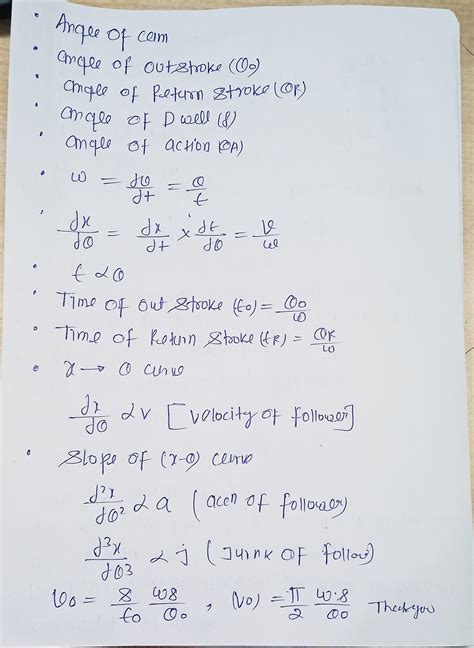 • Angle of cam
• angle of outstroke (θo)
• angle of Return stroke (θR)
• angle of Dwell (δ)
• angle of action (θA)
• ω = dθ/dt = θ/t
• dx/dθ = dx/dt × dt/dθ = v/ω
• t ∝ θ
• Time of out stroke (to) = θo/ω
• Time of Return stroke (tR) = θR/ω
• x → θ curve
dx/dθ ∝ v [velocity of follower]
• Slope of (x-θ) curve
d²x/dθ² ∝ a (acen of follower)
d³x/dθ³ ∝ j (Jurnk of follow)
vo = s/to ωs/θo , (vo) = π/2 ω·s/θo Thankyou